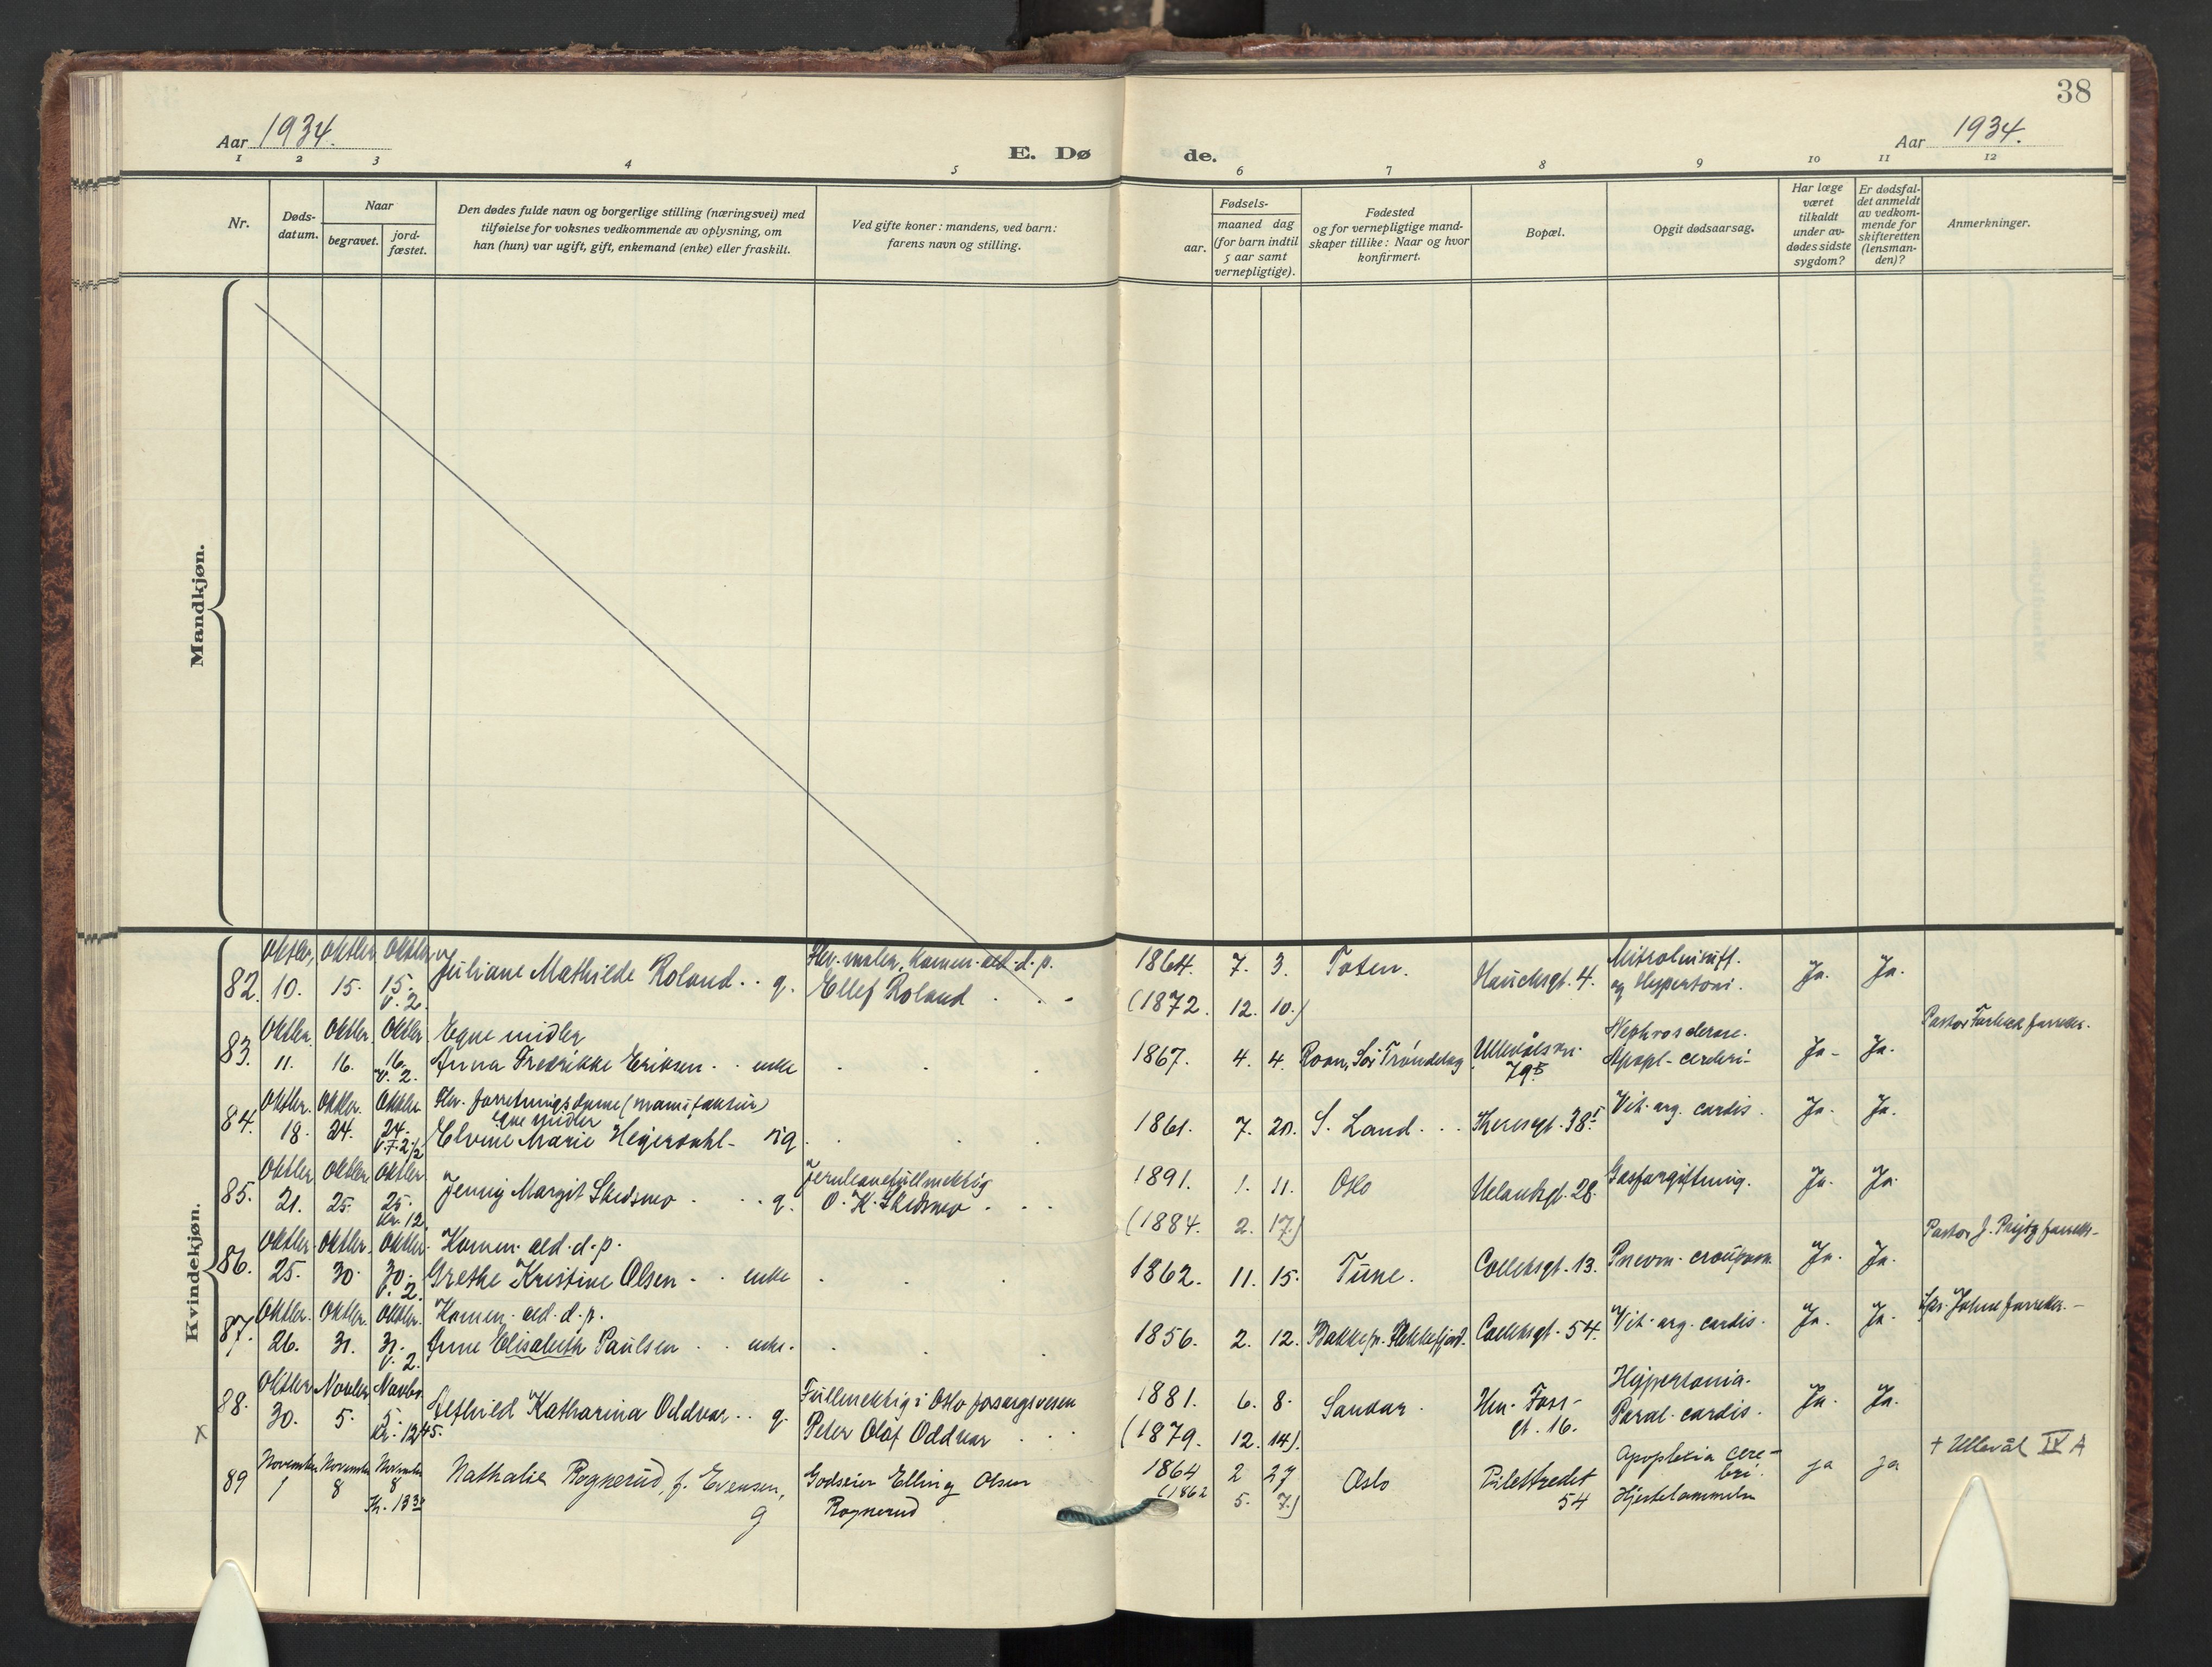 38
Aar 1934.
E. Dø de.
Aar 1934.
1 2 3 4 5 6 7 8 9 10 11 12
Nr.
Døds-
datum.
Naar
begravet.
jord-
fæstet.
Den dødes fulde navn og borgerlige stilling (næringsvei) med
tilføielse for voksnes vedkommende av oplysning, om
han (hun) var ugift, gift, enkemand (enke) eller fraskilt.
Ved gifte koner: mandens, ved barn:
farens navn og stilling.
aar.
Fødsels-
maaned dag
(for barn indtil
5 aar samt
vernepligtige).
Fødested
og for vernepligtige mand-
skaper tillike: Naar og hvor
konfirmert.
Bopæl.
Opgit dødsaarsag.
Har læge
været
tilkaldt
under av-
dødes sidste
sygdom?
Er dødsfal-
det anmeldt
av vedkom-
mende for
skifteretten
(lensman-
den)?
Anmerkninger.
Mandkjøn.
Kvindekjøn.
Oktbr. Oktbr. Oktbr. Hv. maler, komm. ald. d. p.
82. 10. 15. 15. Juliane Mathilde Roland . . g. Ellef Roland 1864. 7. 3. Toten. Hauchsgt. 4. og Hypertoni. Ja. Ja.
V. 2. (1872. 12. 10.)
Oktbr. Oktbr. Oktbr. Egne midler
83. 11. 16. 16. Anna Fredrikke Eriksen . . enke 1867. 4. 4. Roan, Sør Trøndelag Ullevålsvn. Apopl. cerebri Ja. Ja.
V. 2.
Oktbr. Oktbr. Oktbr. Hv. forretningsdame (manufaktur)
Egne midler
84. 18. 24. 24. Elvine Marie Hegerdahl - ug 1861. 7. 20. S. Land. Theresgt. 38 Vit. org. cordis. Ja. Ja.
Oktbr. Oktbr. Oktbr.
85. 21. 25. 25. Jenny Margit Skedsmo . . g. O. K. Skedsmo 1891. 1. 11. Oslo Uelandsgt. 28. Gasforgiftning. Ja. Ja.
Kl. 12. (1884. 2. 17.)
Oktbr. Oktbr. Oktbr. Komm. ald. d. p.
86. 25. 30. 30. Grethe Kristine Olsen . . enke 1862. 11. 15. Tune. Colletsgt. 13. Ja. Ja.
V. 2.
Oktbr. Oktbr. Oktbr. Komm. ald. d. p.
87. 26. 31. 31. Anne Elisabeth Paulsen . . enke. 1856. 2. 12. Bakke pr. Flekkefjord. Colletsgt. 54. Vit. org. cordis. Ja. Ja.
V. 2.
Oktbr. Novbr. Novbr. Fullmektig i Oslo forsorgsvesen Hypertonia.
88. 30. 5. 5. Katharina Oddvar . . g. Peter Olaf Oddvar 1881. 6. 8. Sandar. Paral. cordis. Ja. Ja.
Kl. 12 45. (1879. 12. 14).
x
November November November
89 1 8 8 Nathalie Rognerud, f. Evensen, Godseier Elling Olsen 1864 2 27 Oslo Pilestredet Apoplexia cere-
bri. ja ja + Ullevål IV A
Kl. 13 30 g Rognerud (1862 5. 7.) 54 Hjertelammelse